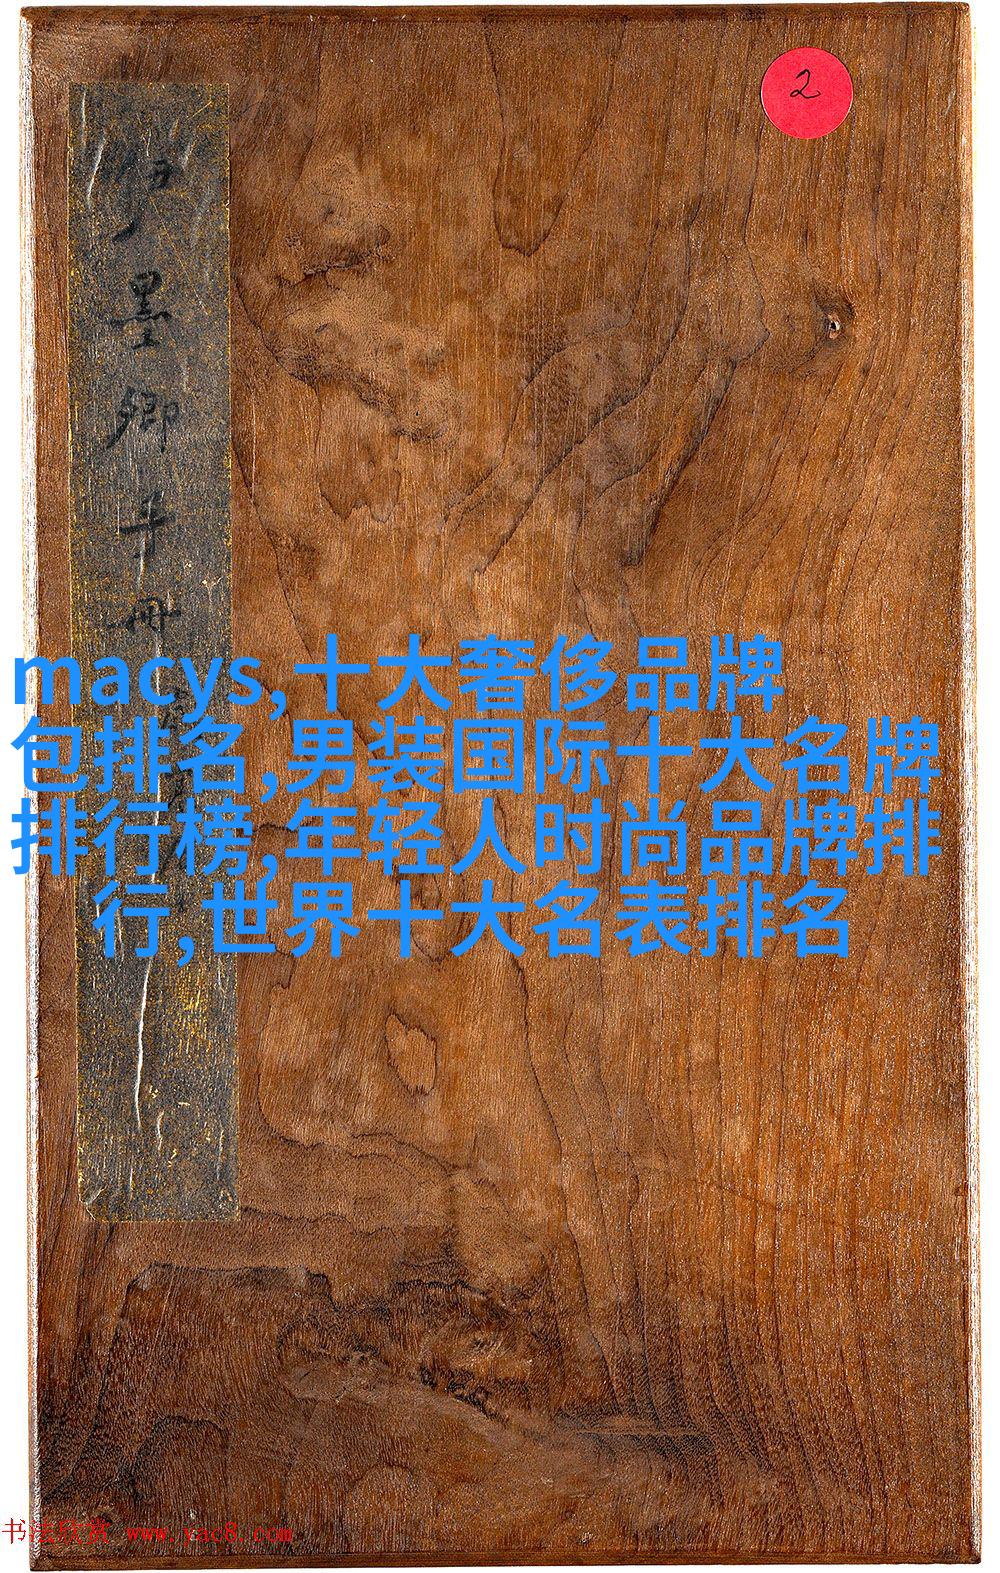 2
墨卿手冊
macys,十大奢侈品牌
包排名,男装国际十大名牌
排行榜,年轻人时尚品牌排
行,世界十大名表排名
书法欣赏 www.yac8.com